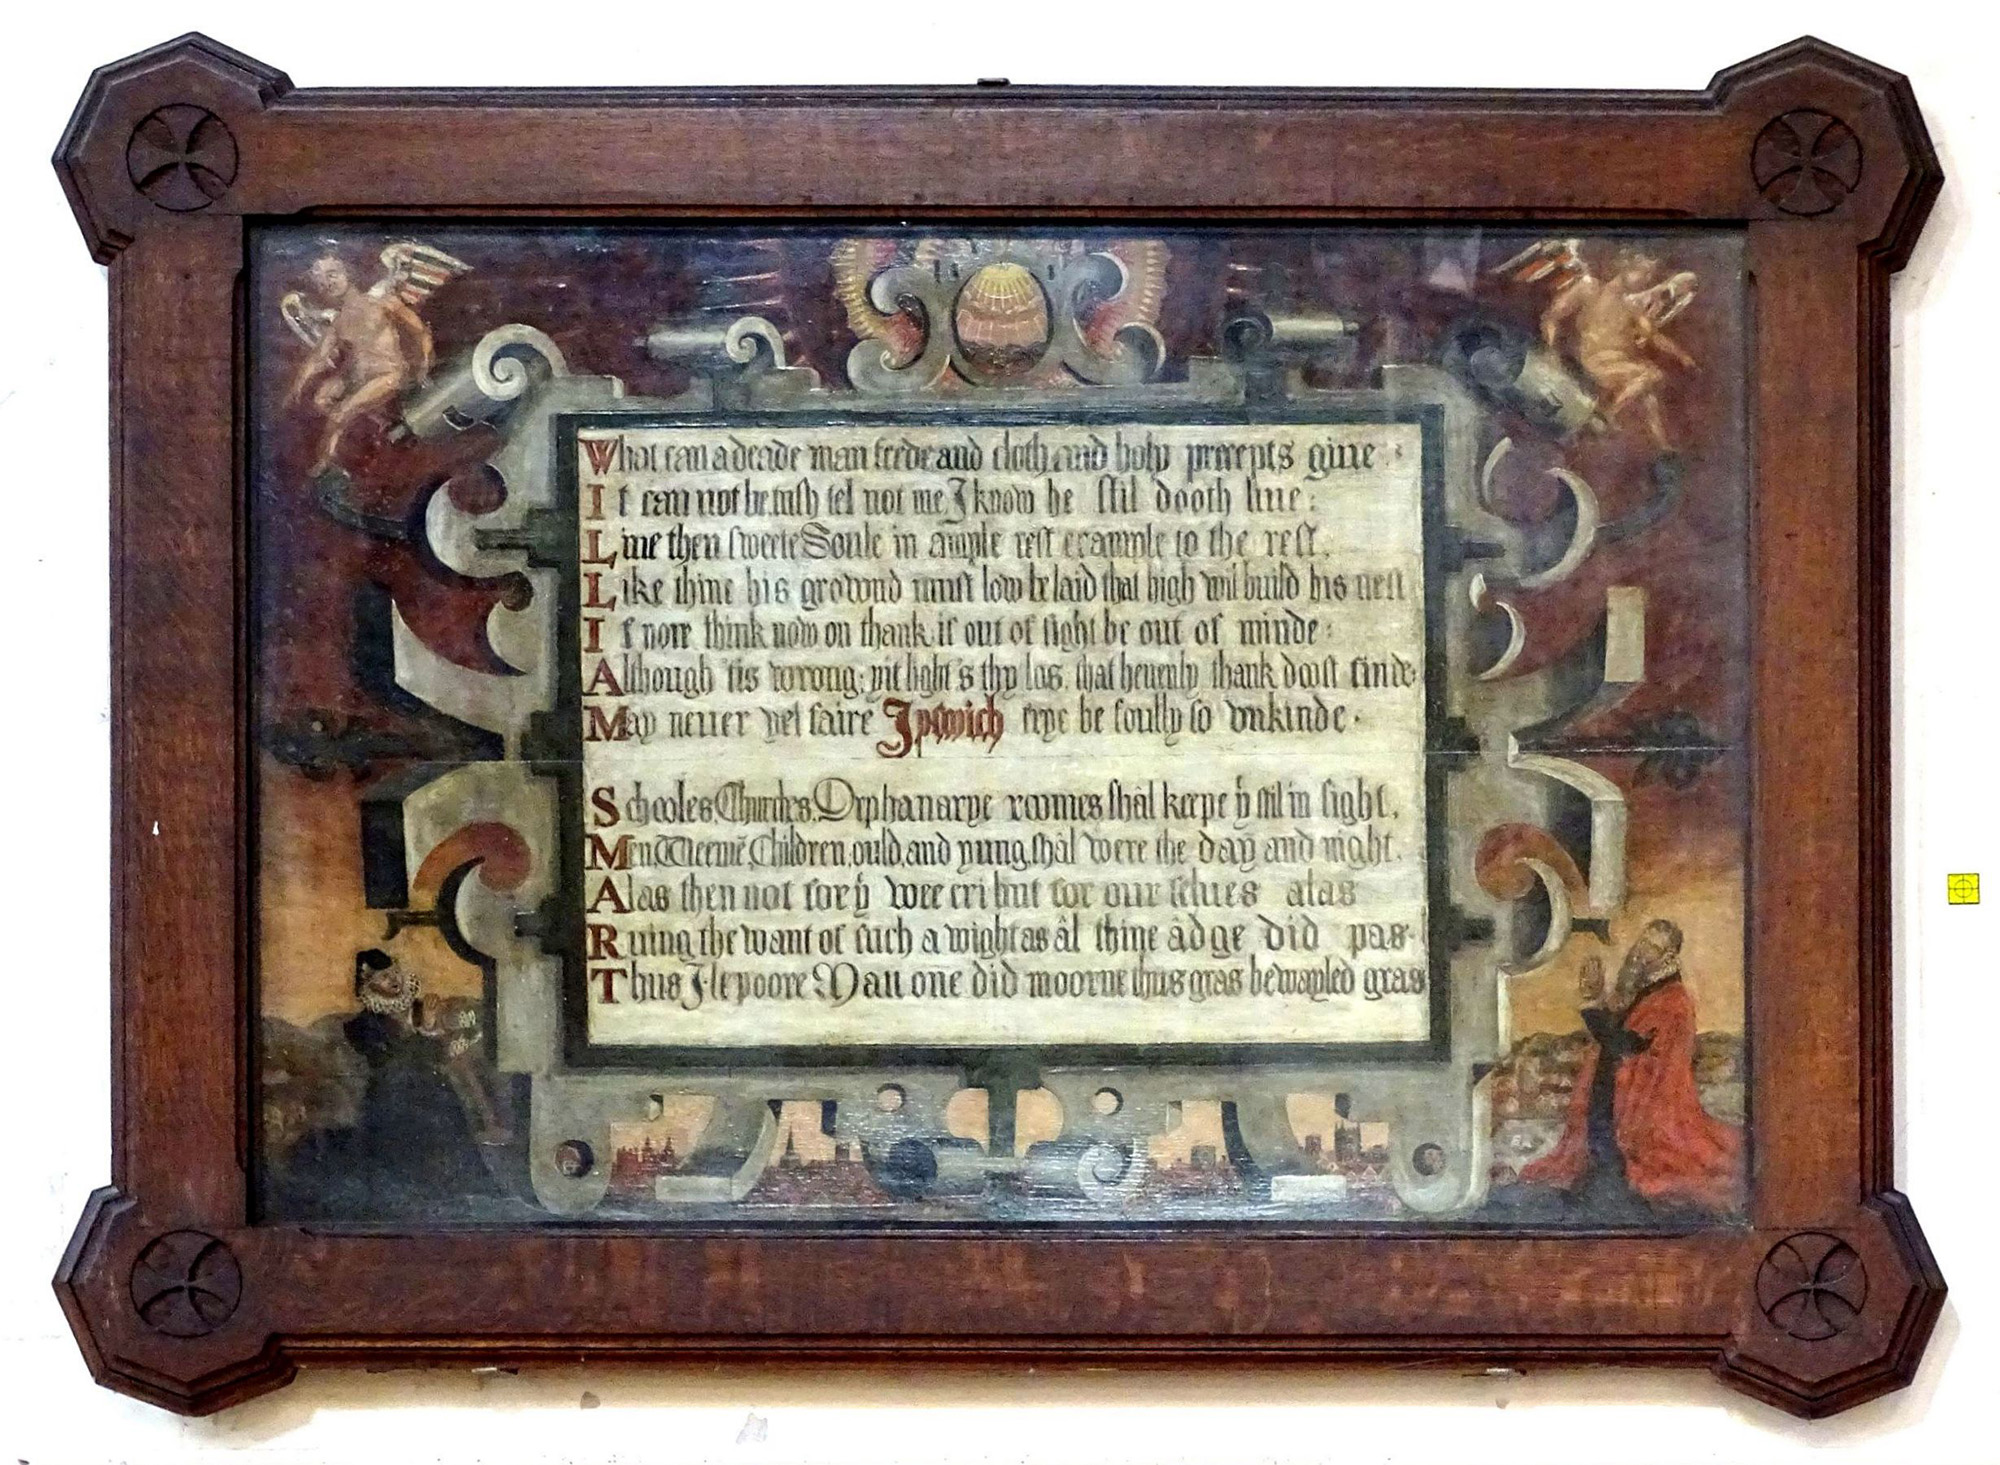 What can a deade man feede and cloth and holy precepts giue :
It can not be, tush tel not me, I know he stil dooth liue :
Liue then sweete Soule in ample rest example to the rest,
Like thine his grownd must low be laid that high wil build his nest
If nore think now on thank if out of sight be out of minde :
Although 'tis wrong: yit light's thy los, that heuenly thank doost finde:
May neuer yet faire Ipswich be soully so vnkinde .
Schooles, Churches, Orphanarye roomes shâl keepe ẏ stil in sight,
Men, Weemē, Children, ould, and yung, shâl were the day and night,
Alas then not for ẏ wee cri but for our selues alas
Ruing the want of such a wight as âl thine âdge did pas.
Thus I. le poore Mau one did moorne thus gras bewayled gras